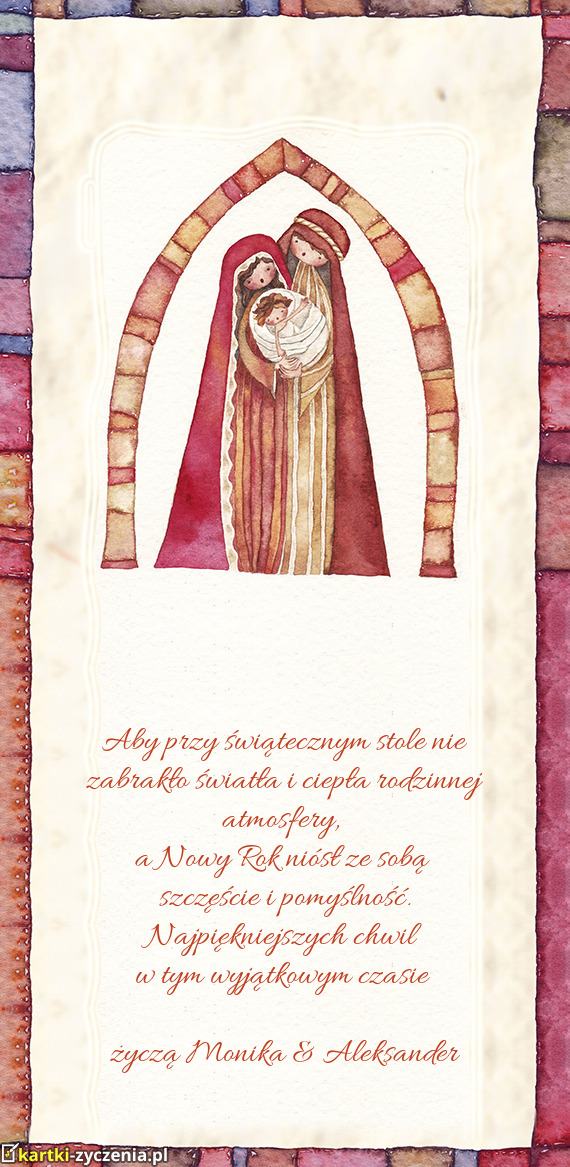 Aby przy świątecznym stole nie
zabrakło światła i ciepła rodzinnej
atmosfery,
a Nowy Rok niósł ze sobą
szczęście i pomyślność.
Najpiękniejszych chwil
w tym wyjątkowym czasie
życzą Monika & Aleksander
kartki-zyczenia.pl